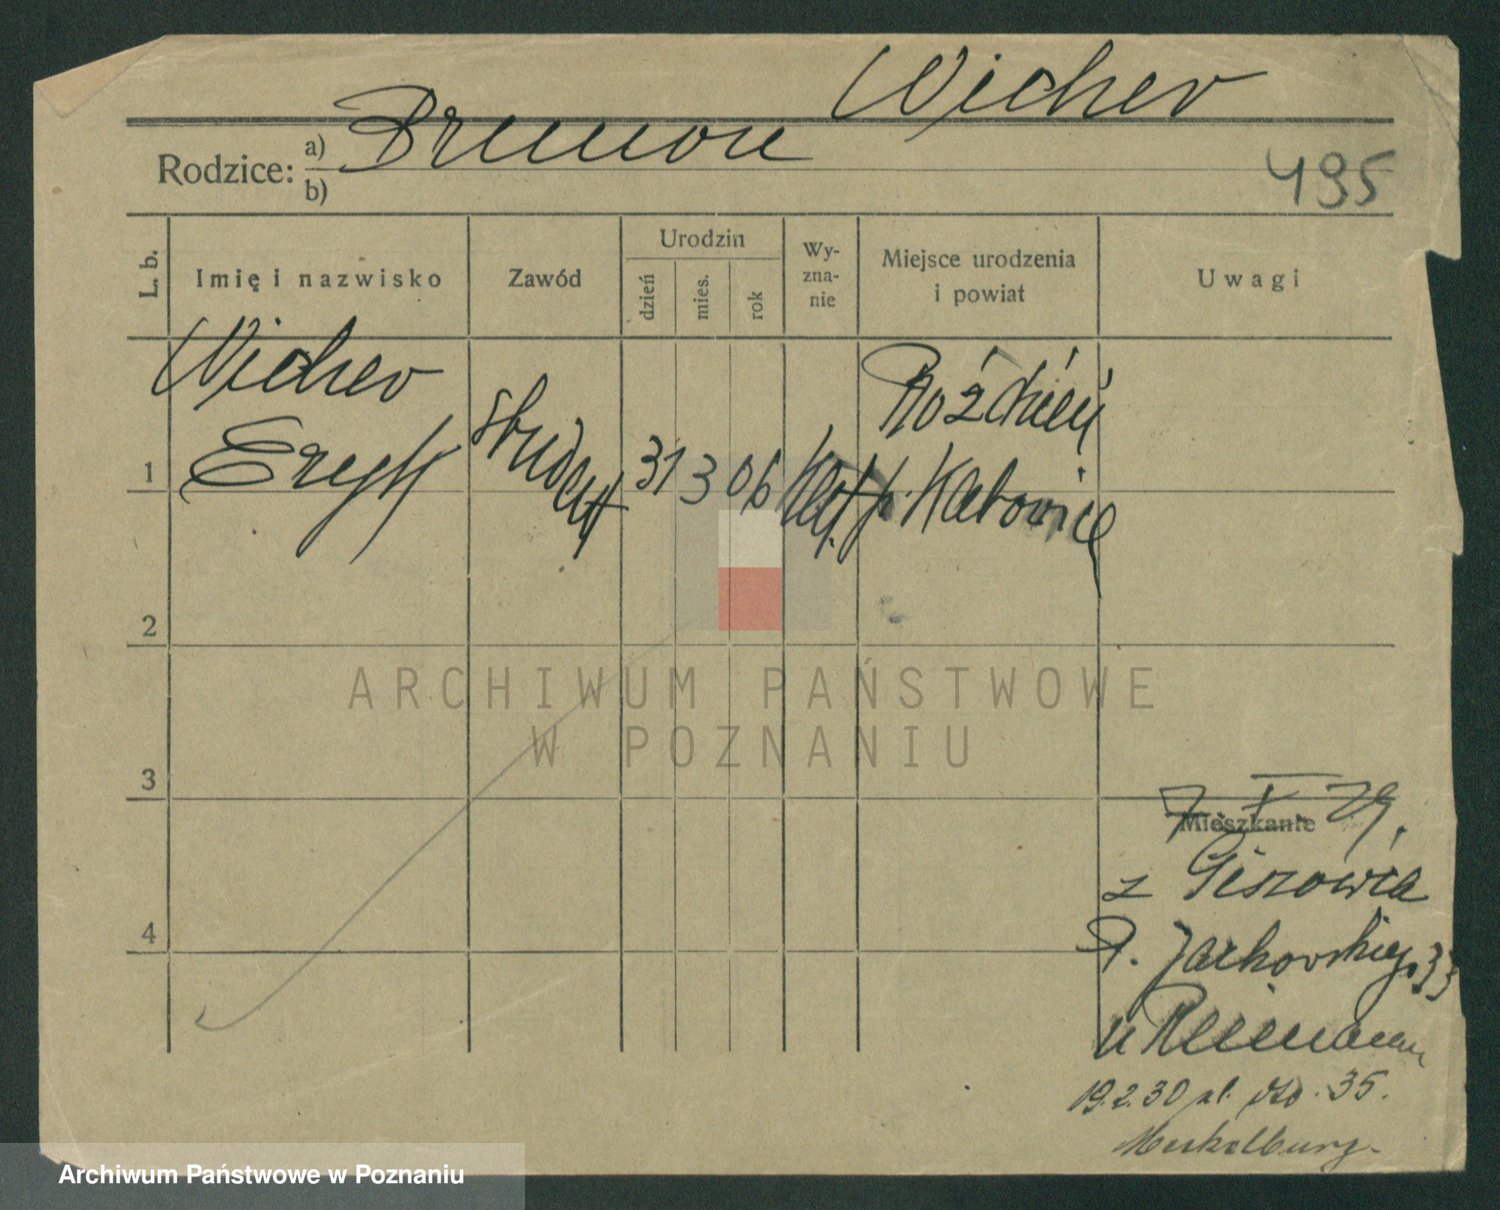 Wicher
Rodzice: a) Brunon
b)
495
L. b.
Imię i nazwisko
Zawód
Urodzin
dzień
mies.
rok
Wy-
zna-
nie
Miejsce urodzenia
i powiat
Uwagi
Wicher
Eryk
student
31 3 06
Kat.
Roździeń
p. Katowice
1
2
3
4
7. X. 29.
Mieszkanie
z Giszowca
P. Jackowskiego 33
u Reimann
19.2.30 ul. 35.
ARCHIWUM PAŃSTWOWE
W POZNANIU
Archiwum Państwowe w Poznaniu